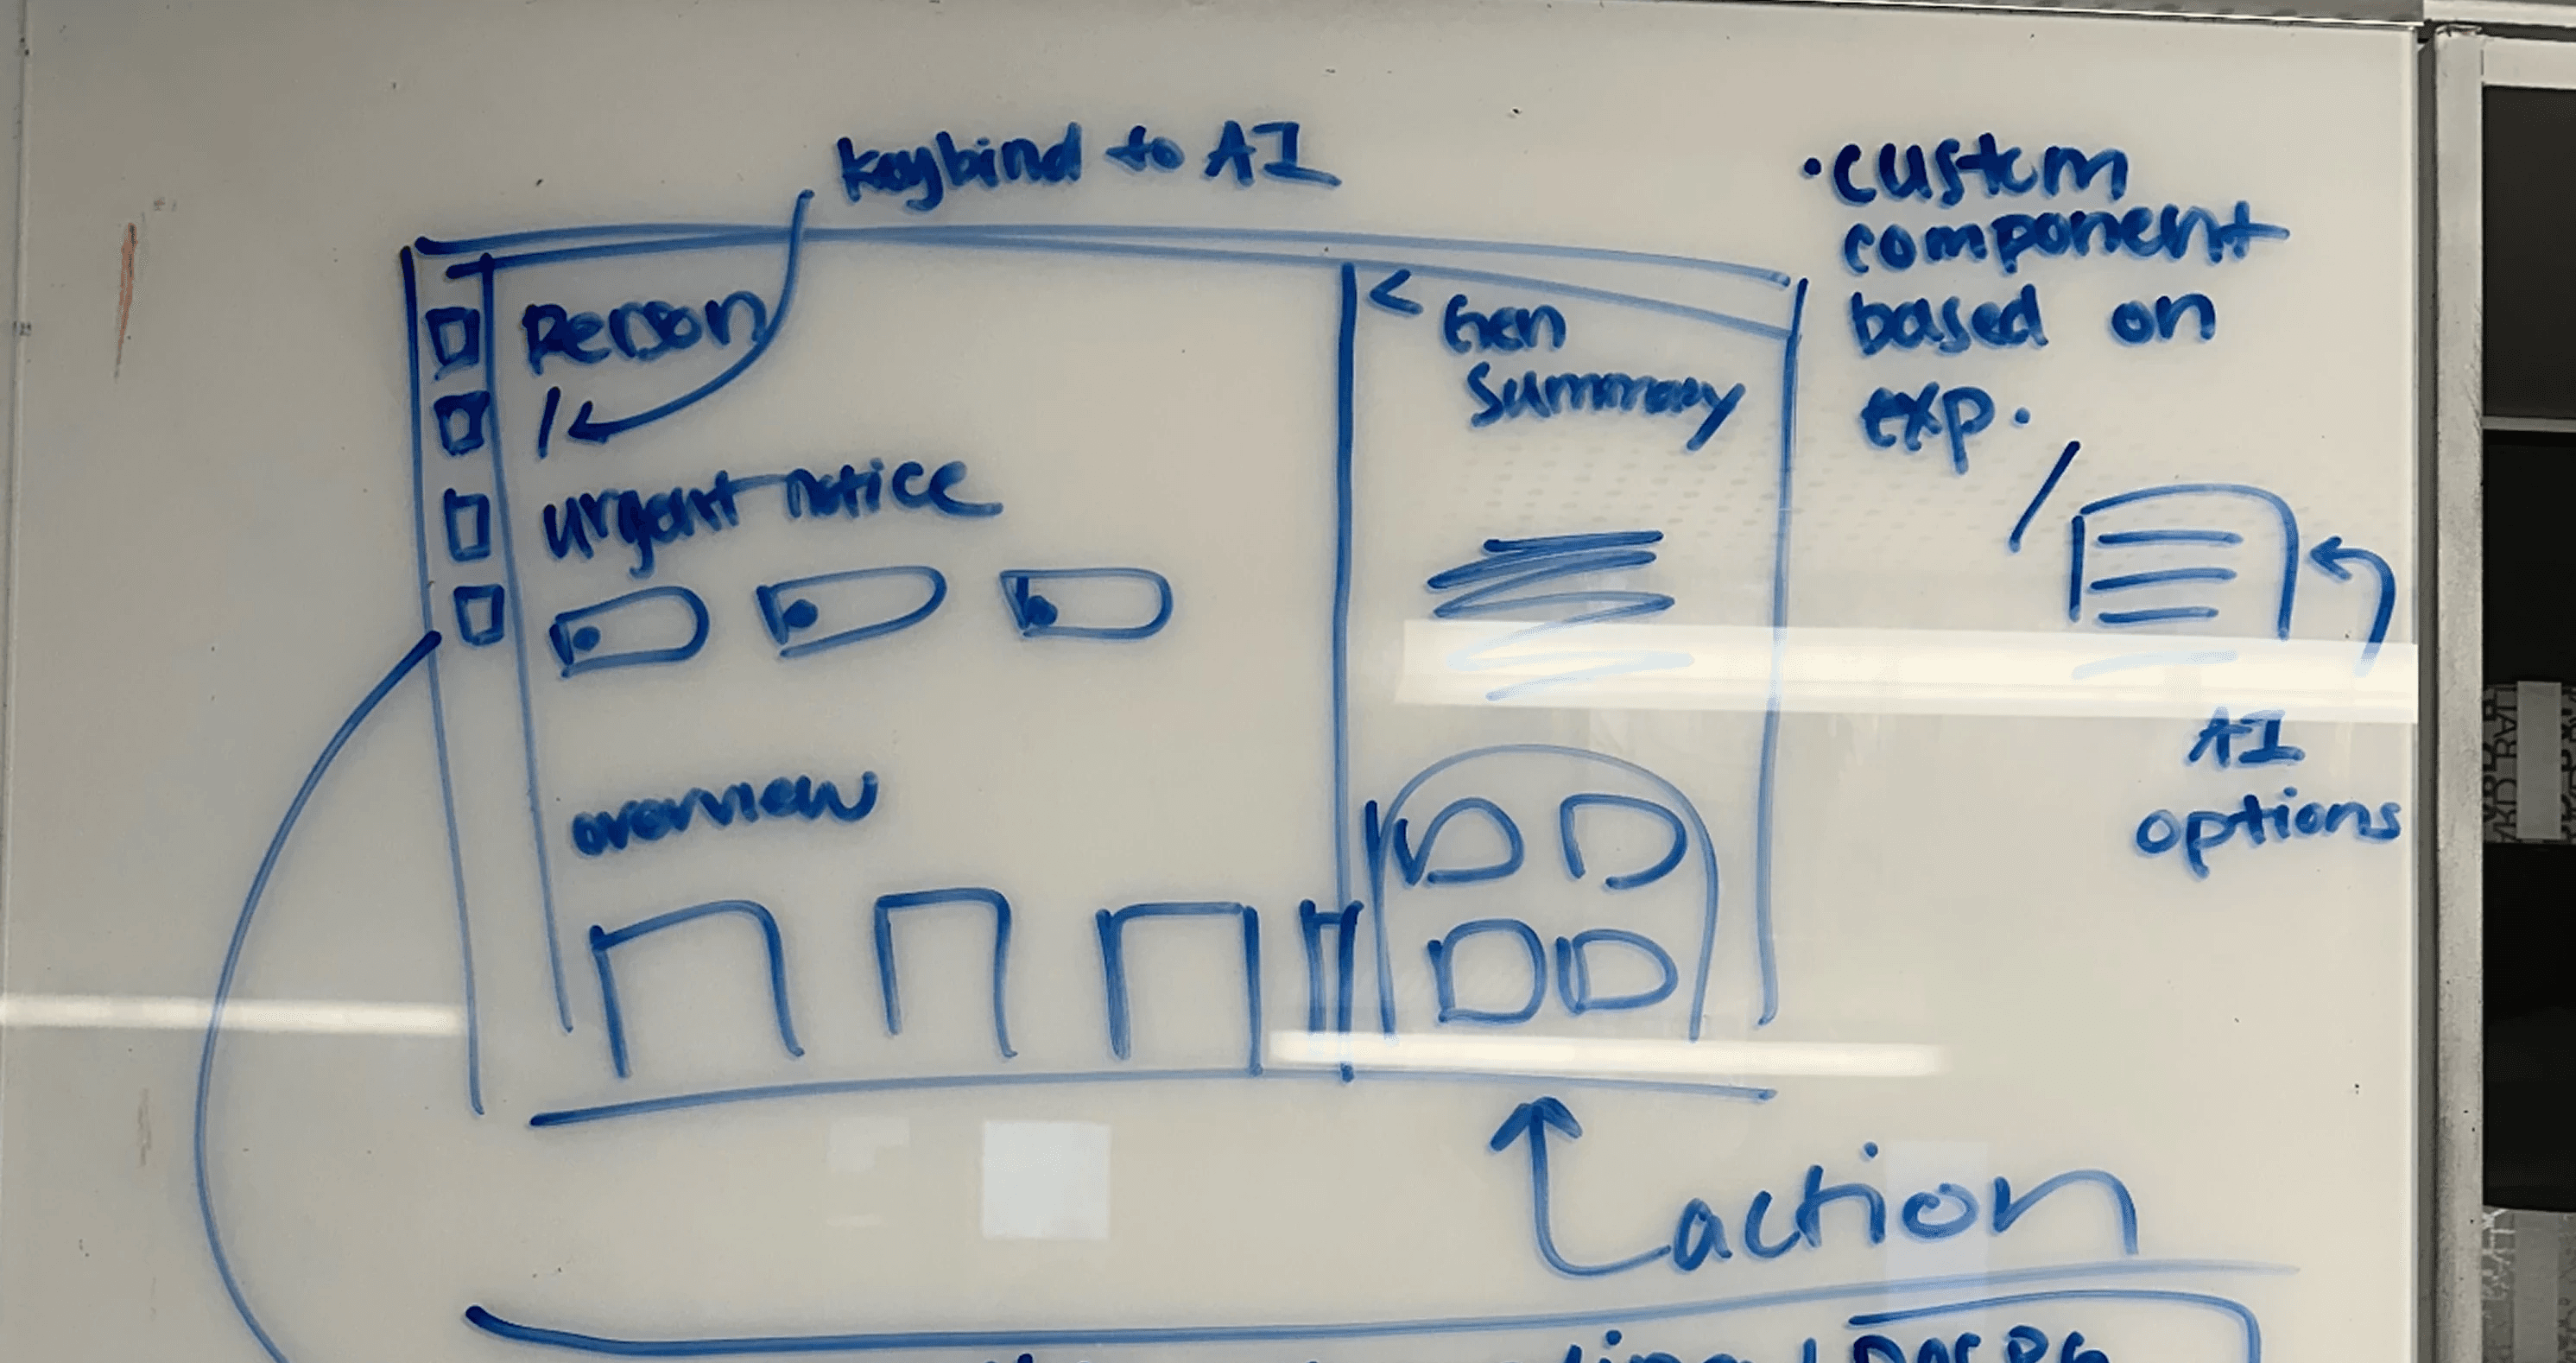 keybind to AI
• custom
component
based on
exp.
/
AI
options
Person
/
urgent notice
overview
< Gen
Summary
action